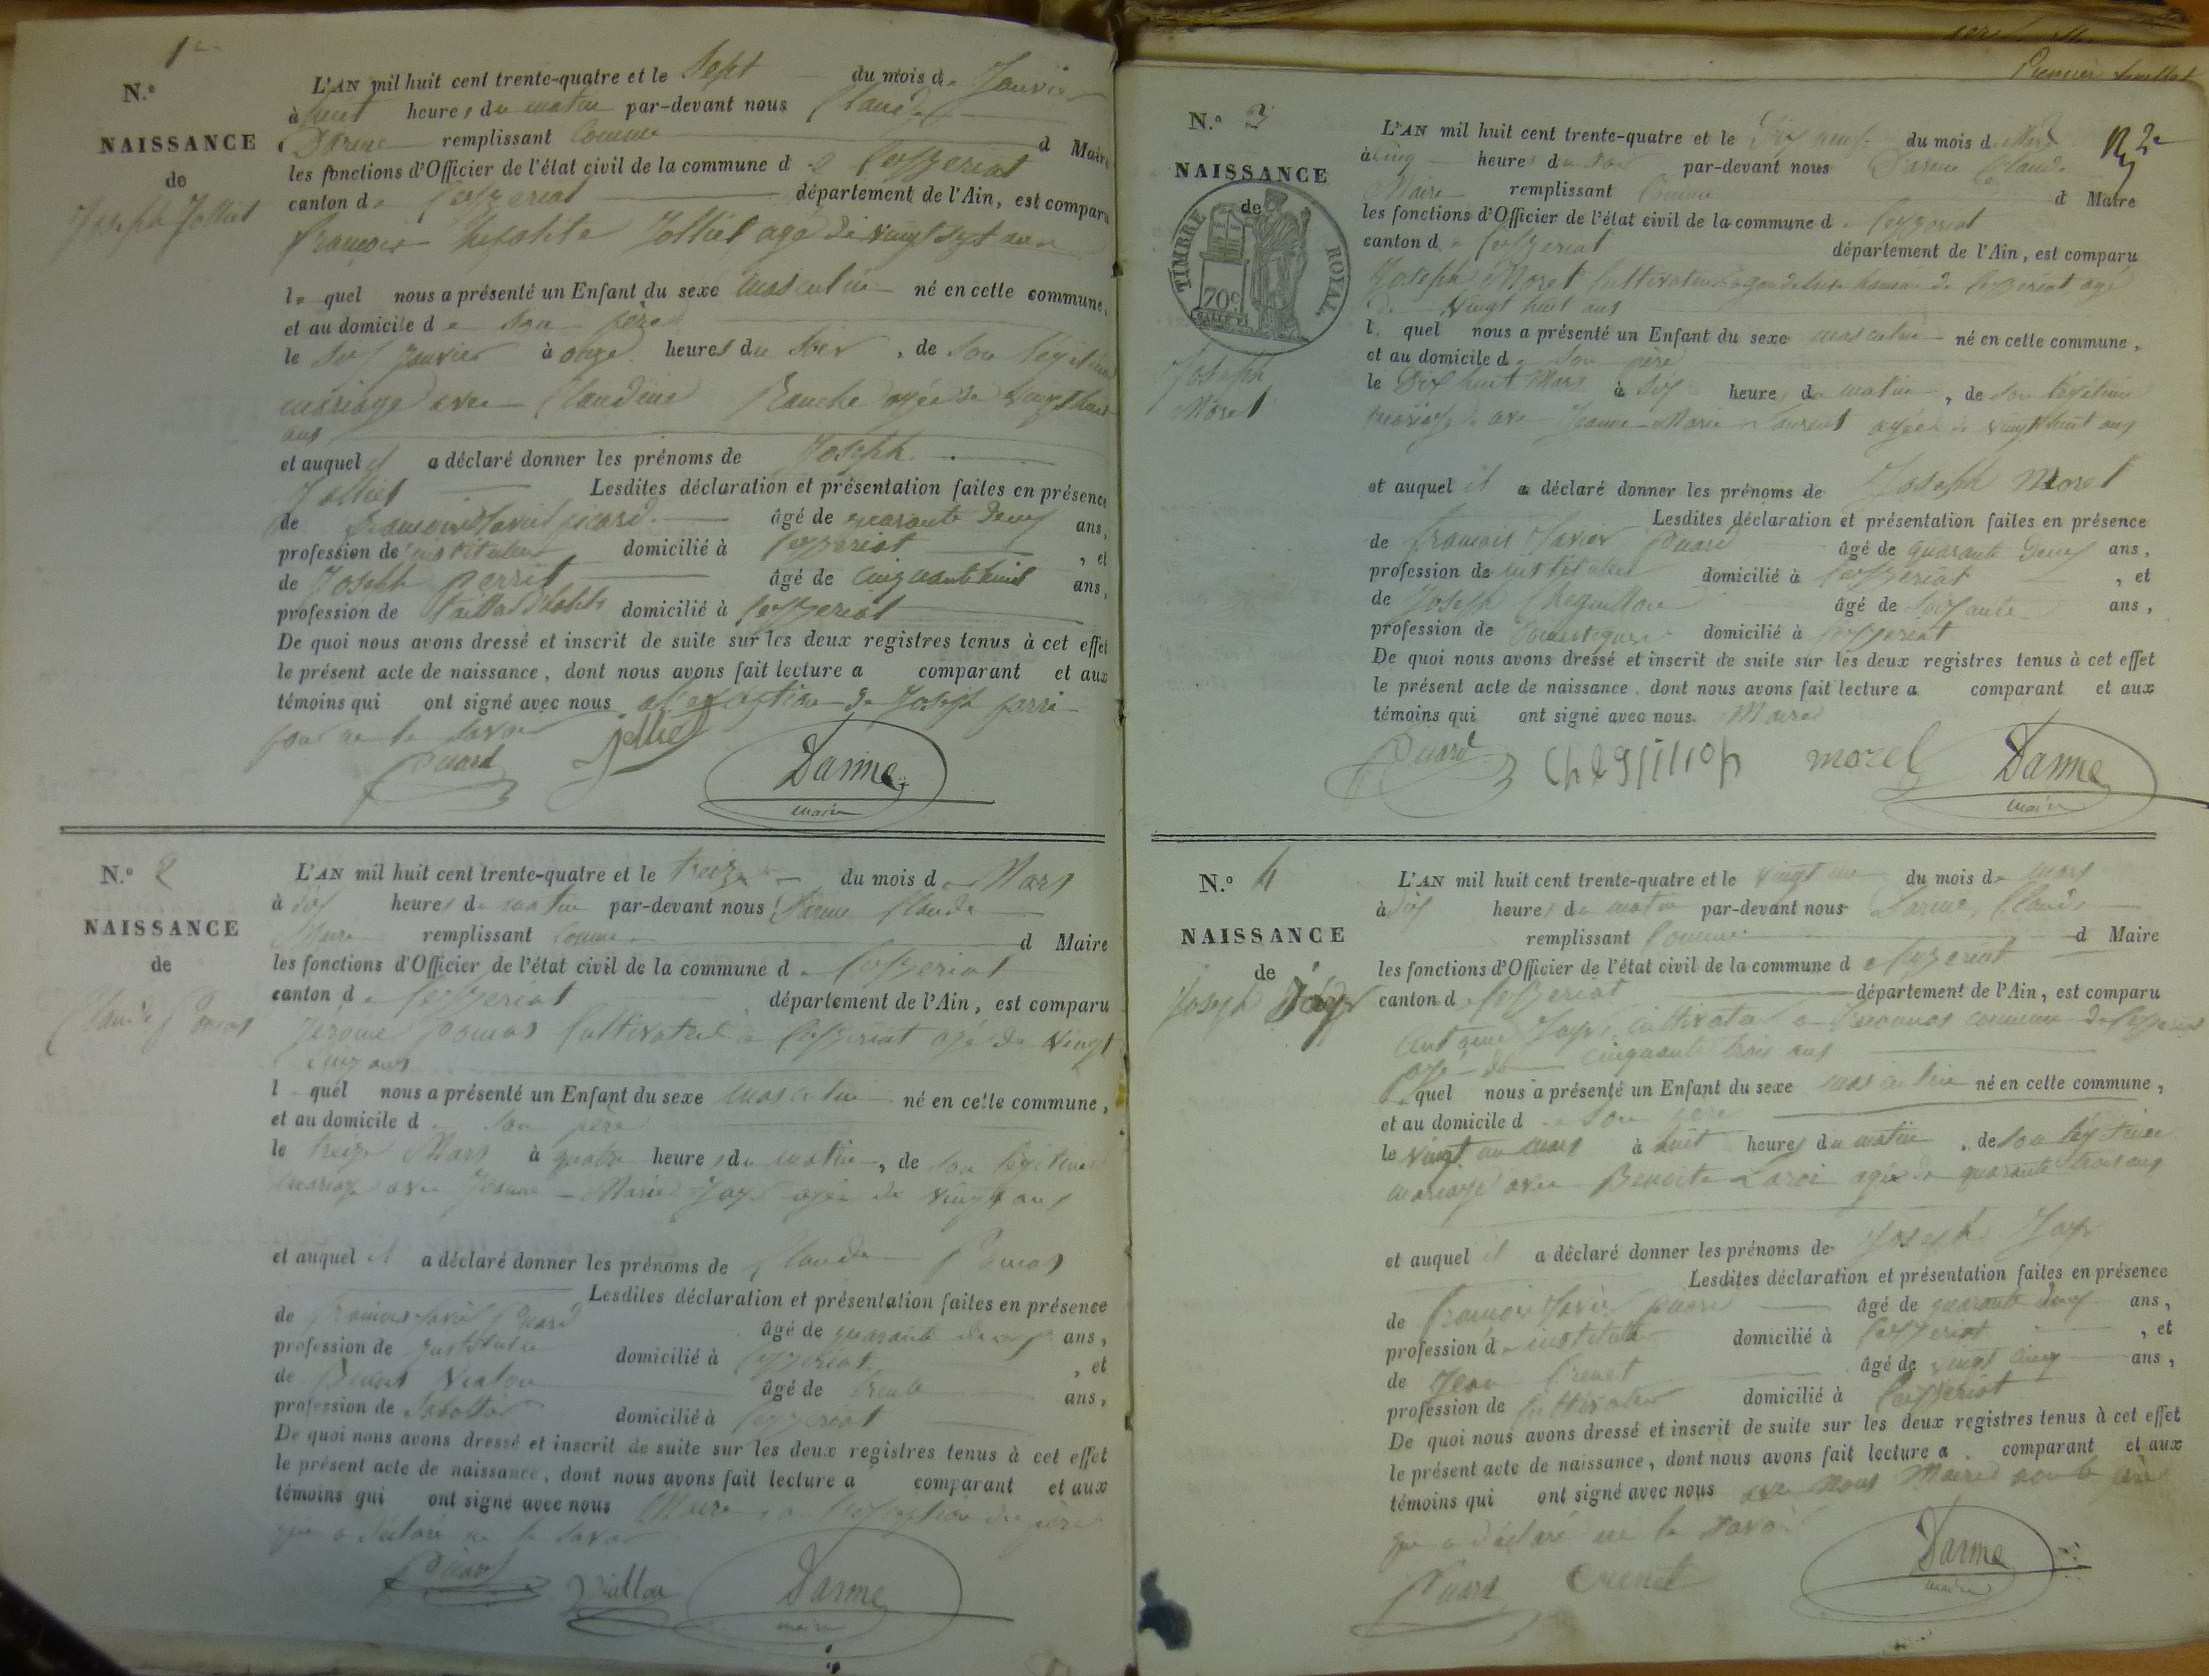 1er
N.o
NAISSANCE
de
Joseph Jolliet
L'AN mil huit cent trente-quatre et le Sept du mois de Janvier
à huit heures du matin par-devant nous Claude
Darme remplissant comme d Maire
les fonctions d'Officier de l'état civil de la commune de Ceyzeriat
canton de Ceyzeriat département de l'Ain, est comparu
françois hipolite Jolliet agé de vingt sept ans
lequel nous a présenté un Enfant du sexe masculin né en cette commune,
et au domicile de son père
le six janvier à onze heures du soir, de son légitime
mariage avec Claudine agée de vingt huit
ans
et auquel il a déclaré donner les prénoms de Joseph
Jolliet Lesdites déclaration et présentation faites en présence
de françois Xavier picard âgé de quarante deux ans,
profession de instituteur domicilié à Ceyzeriat, et
de Joseph perrit âgé de cinquante huit ans,
profession de domicilié à Ceyzeriat
De quoi nous avons dressé et inscrit de suite sur les deux registres tenus à cet effet
le présent acte de naissance, dont nous avons fait lecture a comparant et aux
témoins qui ont signé avec nous a l'exception de Joseph
pour ne le savoir
jolliet
Darme
maire
N.o 2
NAISSANCE
de
Claude
L'AN mil huit cent trente-quatre et le treize du mois de Mars
à dix heures du matin par-devant nous Darme Claude
Maire remplissant comme d Maire
les fonctions d'Officier de l'état civil de la commune de Ceyzeriat
canton de Ceyzeriat département de l'Ain, est comparu
Jérome Cultivateur a Ceyzeriat agé de vingt
cinq ans
l quel nous a présenté un Enfant du sexe masculin né en cette commune,
et au domicile de son père
le treize Mars à quatre heures du matin, de son légitime
mariage avec Jeanne-Marie Jayr agée de vingt ans
et auquel il a déclaré donner les prénoms de Claude
Lesdites déclaration et présentation faites en présence
de françois Xavier picard âgé de quarante deux ans,
profession de instituteur domicilié à Ceyzeriat, et
de Benoit Viallon âgé de trente ans,
profession de Sabotier domicilié à Ceyzeriat
De quoi nous avons dressé et inscrit de suite sur les deux registres tenus à cet effet
le présent acte de naissance, dont nous avons fait lecture a comparant et aux
témoins qui ont signé avec nous Maire a l'exception du père
qui a déclaré ne le savoir
Viallon
Darme
maire
Premier feuillet
N.o 3
NAISSANCE
de
TIMBRE ROYAL
70c
Joseph
Morel
L'AN mil huit cent trente-quatre et le Dix neuf du mois de Mars
à cinq heures du soir par-devant nous Darme Claude
Maire remplissant comme d Maire
les fonctions d'Officier de l'état civil de la commune de Ceyzeriat
canton de Ceyzeriat département de l'Ain, est comparu
Joseph Morel Cultivateur de Ceyzeriat agé
de vingt huit ans
l quel nous a présenté un Enfant du sexe masculin né en cette commune,
et au domicile de son père
le Dix huit Mars à Six heures du matin, de son légitime
mariage avec Jeanne-Marie Laurent agée de vingt huit ans
et auquel il a déclaré donner les prénoms de Joseph Morel
Lesdites déclaration et présentation faites en présence
de françois Xavier picard âgé de quarante deux ans,
profession de instituteur domicilié à Ceyzeriat, et
de Joseph âgé de Soixante ans,
profession de domestique domicilié à Ceyzeriat
De quoi nous avons dressé et inscrit de suite sur les deux registres tenus à cet effet
le présent acte de naissance, dont nous avons fait lecture a comparant et aux
témoins qui ont signé avec nous Maire
morel
Darme
maire
N.o 4
NAISSANCE
de
Joseph Jayr
L'AN mil huit cent trente-quatre et le vingt un du mois de mars
à dix heures du matin par-devant nous Darme, Claude
remplissant comme d Maire
les fonctions d'Officier de l'état civil de la commune de Ceyzeriat
canton de Ceyzeriat département de l'Ain, est comparu
Antoine Jayr cultivateur a commune de Ceyzeriat
agé de cinquante trois ans
l quel nous a présenté un Enfant du sexe masculin né en cette commune,
et au domicile de son père
le vingt un mars à huit heures du matin, de son légitime
mariage avec Benoite agée de quarante trois ans
et auquel il a déclaré donner les prénoms de Joseph Jayr
Lesdites déclaration et présentation faites en présence
de françois Xavier picard âgé de quarante deux ans,
profession de instituteur domicilié à Ceyzeriat, et
de Jean Crenet âgé de vingt cinq ans,
profession de Cultivateur domicilié à Ceyzeriat
De quoi nous avons dressé et inscrit de suite sur les deux registres tenus à cet effet
le présent acte de naissance, dont nous avons fait lecture a comparant et aux
témoins qui ont signé avec nous Maire
qui a déclaré ne le savoir
Crenet
Darme
maire